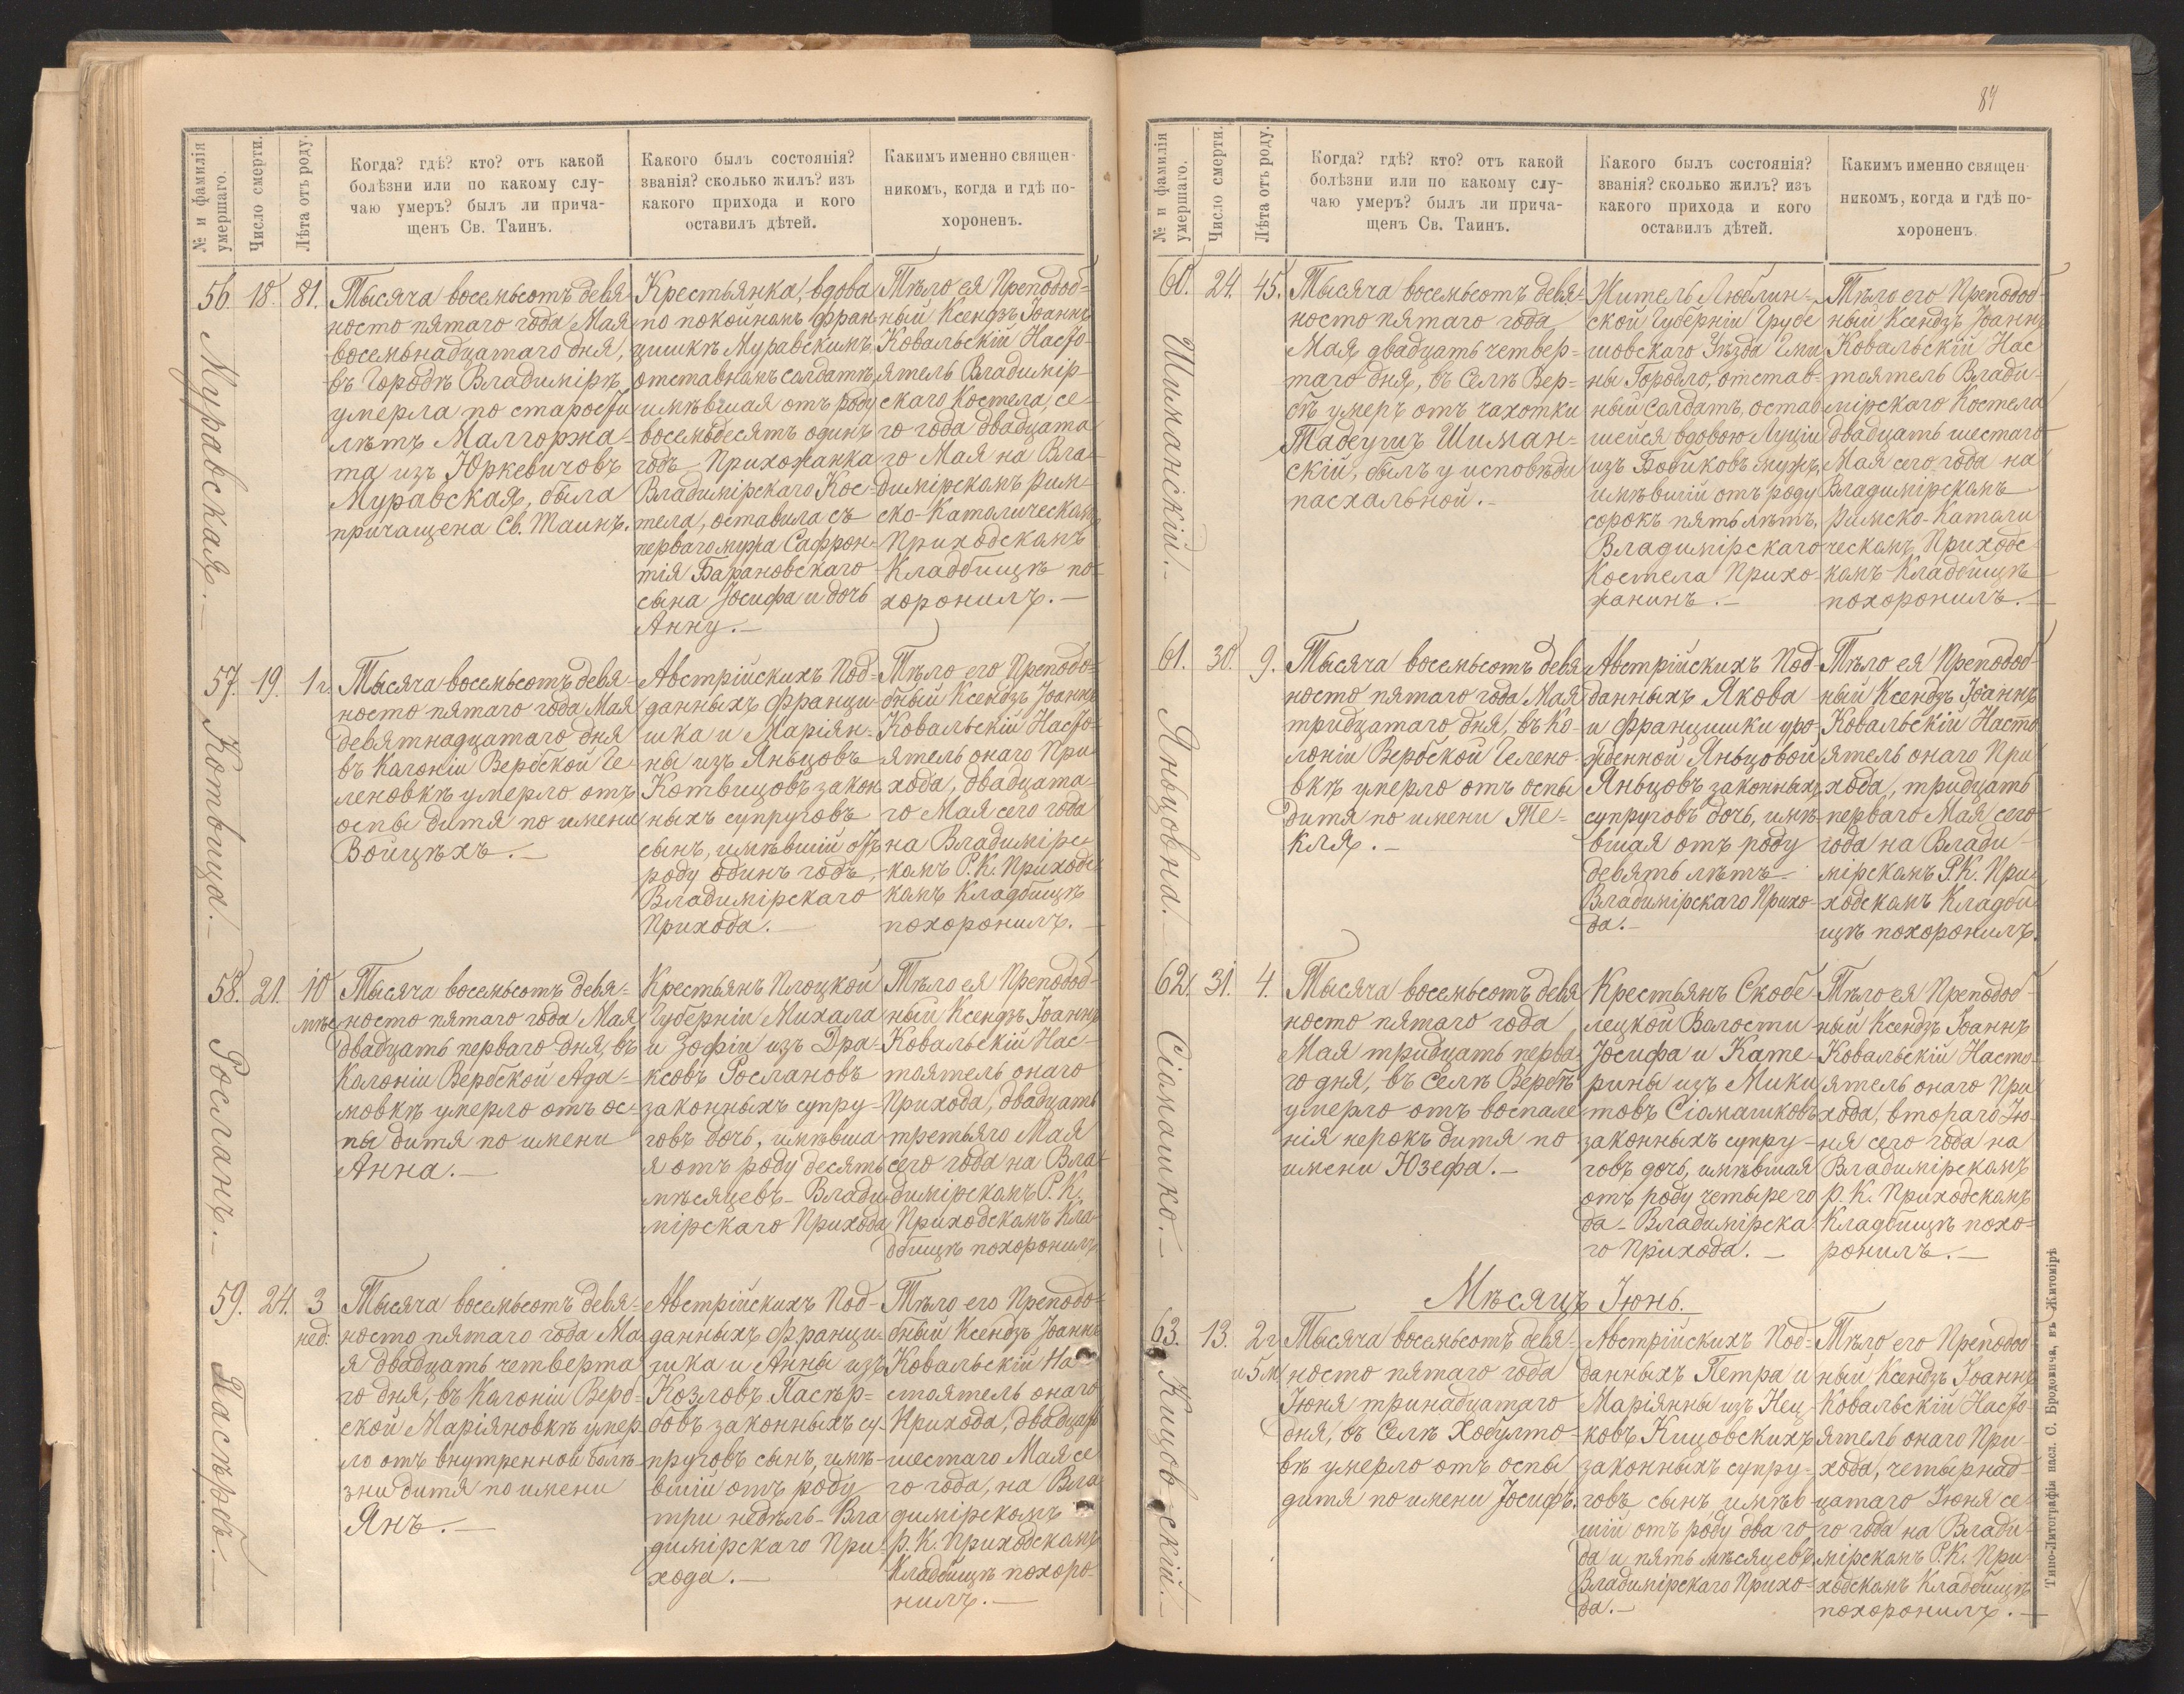 84
№ и фамилія умершаго.
Число смерти.
Лѣта отъ роду.
Когда? гдѣ? кто? отъ какой
болѣзни или по какому слу-
чаю умеръ? былъ ли прича-
щенъ Св. Таинъ.
Какого былъ состоянія?
званія? сколько жилъ? изъ
какого прихода и кого
оставилъ дѣтей.
Какимъ именно священ-
никомъ, когда и гдѣ по-
хороненъ.
56.
Муравская.
18.
81.
Тысяча восемьсотъ девя-
носто пятаго года Мая
восемьнадцатаго дня,
въ Городѣ Владимірѣ
умерла по старости
лѣтъ Малгоржа-
та изъ Юркевичовъ
Муравская, была
причащена Св. Таинъ.
Крестьянка, вдова
по покойномъ Фран-
цишкѣ Муравскимъ,
отставномъ солдатѣ,
имѣвшая отъ роду
восемьдесятъ одинъ
годъ, Прихожанка
Владимірскаго Кос-
тела, оставила съ
перваго мужа Сафрон-
тія Барановскаго
сына Іосифа и дочь
Анну.—
Тѣло ея Преподоб-
ный Ксендзъ Іоаннъ
Ковальскій Насто-
ятель Владимір-
скаго Костела, се-
го года двадцата-
го Мая на Вла-
димірскомъ рим-
ско-Католическомъ
Приходскомъ
Кладбищѣ по-
хоронилъ.—
57.
Котвица.—
19.
1 г.
Тысяча восемьсотъ девя-
носто пятаго года Мая
девятнадцатаго дня
въ Колоніи Вербской Ге-
леновкѣ умерло отъ
оспы дитя по имени
Войцѣхъ.—
Австрійскихъ Под-
данныхъ Франци-
шка и Маріян-
ны изъ Яньцовъ
Котвицовъ закон-
ныхъ супруговъ
сынъ, имѣвшій отъ
роду одинъ годъ,
Владимірскаго
Прихода.—
Тѣло его Преподо-
бный Ксендзъ Іоаннъ
Ковальскій Насто-
ятель онаго При-
хода, двадцата-
го Мая сего года
на Владимірс-
комъ Р.К. Приходс-
комъ Кладбищѣ
похоронилъ.—
58.
Росланъ.—
21.
10
мѣс
Тысяча восемьсотъ девя-
носто пятаго года Мая
двадцать перваго дня, въ
Колоніи Вербской Ада-
мовкѣ умерло отъ ос-
пы дитя по имени
Анна.—
Крестьянъ Плоцкой
Губерніи Михала
и Зофіи изъ Дра-
ксовъ Рослановъ
законныхъ супру-
говъ дочь, имѣвша-
я отъ роду десять
мѣсяцевъ – Влади-
мірскаго Прихода
Тѣло ея Преподоб-
ный Ксендзъ Іоаннъ
Ковальскій Нас-
тоятель онаго
Прихода, двадцать
третьяго Мая
сего года на Вла-
димірскомъ Р.К.
Приходскомъ Кла-
дбищѣ похоронилъ
59.
Пастѣрбъ.—
24.
3
нед:
Тысяча восемьсотъ девя-
носто пятаго года Ма-
я двадцать четверта-
го дня, въ Колоніи Верб-
ской Маріяновкѣ умер-
ло отъ внутренной болѣ-
зни дитя по имени
Янъ.—
Австрійскихъ Под-
данныхъ Франци-
шка и Анны изъ
Козловъ Пастѣр-
бовъ законныхъ су-
пруговъ сынъ, имѣ-
вшій отъ роду
три недѣль – Вла-
димірскаго При-
хода.—
Тѣло его Преподо-
бный Ксендзъ Іоаннъ
Ковальскій На-
стоятель онаго
Прихода, двадцать
шестаго Мая се-
го года, на Вла-
димірскомъ
Р.К. Приходскомъ
Кладбищѣ похоро-
нилъ.—
№ и фамилія умершаго.
Число смерти.
Лѣта отъ роду.
Когда? гдѣ? кто? отъ какой
болѣзни или по какому слу-
чаю умеръ? былъ ли прича-
щенъ Св. Таинъ.
Какого былъ состоянія?
званія? сколько жилъ? изъ
какого прихода и кого
оставилъ дѣтей.
Какимъ именно священ-
никомъ, когда и гдѣ по-
хороненъ.
60.
Шиманскій.—
24.
45.
Тысяча восемьсотъ девя-
носто пятаго года,
Мая двадцать четвер-
таго дня, въ Селѣ Вер-
бѣ умеръ отъ чахотки
Тадеушъ Шиман-
скій, былъ у исповѣди
пасхальной.—
Житель Люблин-
ской Губерніи Грубе-
шовскаго Уѣзда Гми-
ны Городло, отстав-
ный солдатъ, остав-
шейся вдовою Луціи
изъ Бойковъ мужъ,
имѣвшій отъ роду
сорокъ пять лѣтъ,
Владимірскаго
Костела Прихо-
жанинъ.—
Тѣло его Преподоб-
ный Ксендзъ Іоаннъ
Ковальскій Нас-
тоятель Влади-
мірскаго Костела
двадцать шестаго
Мая сего года на
Владимірскомъ
Римско-Католи-
ческомъ Приходс-
комъ Кладбищѣ
похоронилъ.—
61.
Яньцовна.—
30.
9.
Тысяча восемьсотъ девя-
носто пятаго года Мая
тридцатаго дня, въ Ко-
лоніи Вербской Гелено-
вкѣ умерло отъ оспы
дитя по имени Те-
кля.—
Австрійскихъ Под-
данныхъ Якова
и Францишки уро-
жденной Яньцовой
Яньцовъ законныхъ
супруговъ дочь, имѣ-
вшая отъ роду
девять лѣтъ –
Владимірскаго Прихо-
да.—
Тѣло ея Преподоб-
ный Ксендзъ Іоаннъ
Ковальскій Насто-
ятель онаго При-
хода, тридцать
перваго Мая сего
года на Влади-
мірскомъ Р.К. При-
ходскомъ Кладби-
щѣ похоронилъ.
62.
Сіомашко.—
31.
4.
Тысяча восемьсотъ девя-
носто пятаго года
Мая тридцать перва-
го дня, въ Селѣ Вербѣ
умерло отъ воспале-
нія нерокъ дитя по
имени Юзефа.—
Крестьянъ Скобе-
лецкой Волости
Іосифа и Кате-
рины изъ Мики-
товъ Сіомашковъ
законныхъ супру-
говъ дочь, имѣвшая
отъ роду четыре го-
да – Владимірска-
го Прихода.—
Тѣло ея Преподоб-
ный Ксендзъ Іоаннъ
Ковальскій Насто-
ятель онаго При-
хода, втораго Ію-
ня сего года на
Владимірскомъ
Р.К. Приходскомъ
Кладбищѣ похо-
ронилъ.—
Мѣсяцъ Іюнь.
63.
Кицовскій.—
13.
2 г.
и 5 м
Тысяча восемьсотъ девя-
носто пятаго года
Іюня тринадцатаго
дня, въ Селѣ Хобулто-
вѣ умерло отъ оспы
дитя по имени Іосифъ.
Австрійскихъ Под-
данныхъ Петра и
Маріянны изъ Нец-
ковъ Кицовскихъ
законныхъ супру-
говъ сынъ, имѣв-
шій отъ роду два го-
да и пять мѣсяцевъ
Владимірскаго Прихо-
да.—
Тѣло его Преподоб-
ный Ксендзъ Іоаннъ
Ковальскій Насто-
ятель онаго При-
хода, четырнад-
цатаго Іюня се-
го года на Влади-
мірскомъ Р.К. При-
ходскомъ Кладбищѣ
похоронилъ.—
Типо-Литографія насл. С. Бродовича, въ Житомірѣ